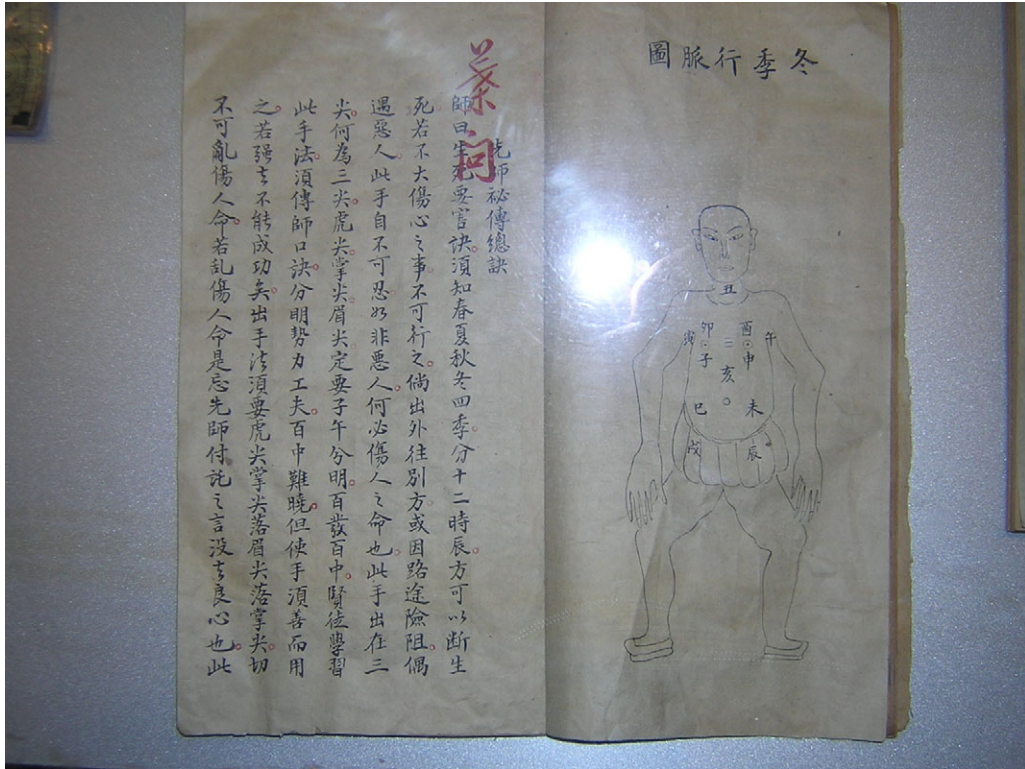 冬季行脈圖
丑
酉
卯
午
寅
申
子
亥
未
巳
辰
戌
先師祕傳總訣
師曰生死要言訣須知春夏秋冬四季分十二時辰方可以斷生
死若不大傷心之事不可行之倘出外往別方或因路途險阻偶
遇惡人此手自不可忍如非惡人何必傷人之命也此手出在三
尖何為三尖虎尖掌尖眉尖定要子午分明百發百中賢徒學習
此手法須傳師口訣分明勢力工夫百中難曉但使手須善而用
之若强去不能成功矣出手法須要虎尖掌尖落眉尖落掌尖切
不可亂傷人命若乱傷人命是忘先師付託之言没去良心也此